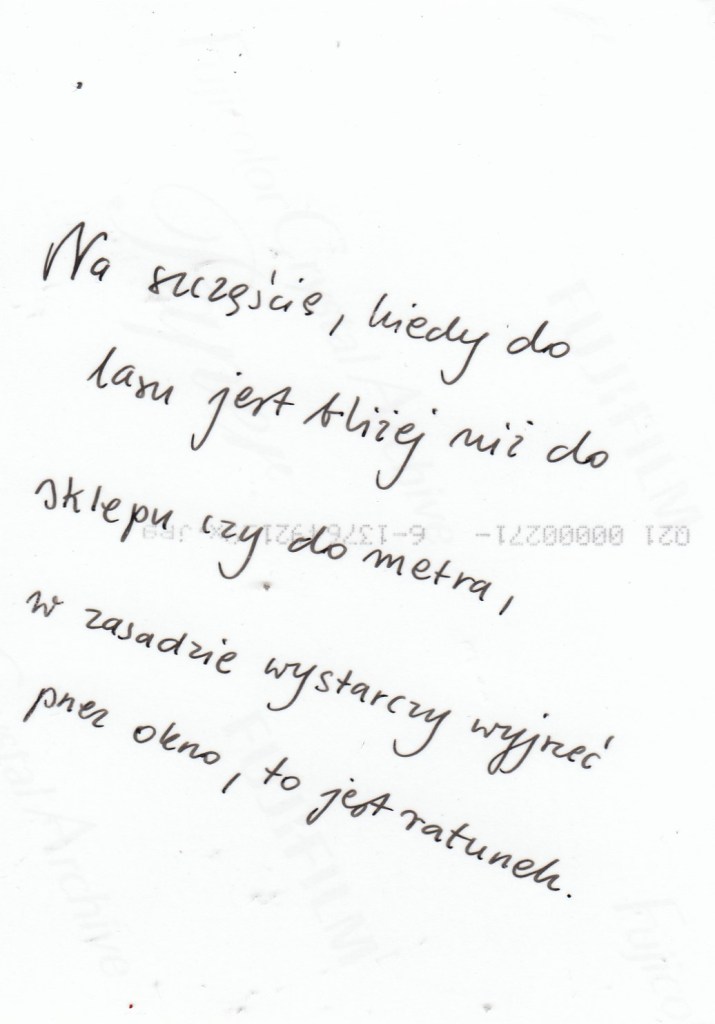 Na szczęście, kiedy do
lasu jest bliżej niż do
sklepu czy do metra,
021 00000271- 6-
w zasadzie wystarczy wyjrzeć
przez okno, to jest ratunek.
FUJIFILM
FUJIFILM